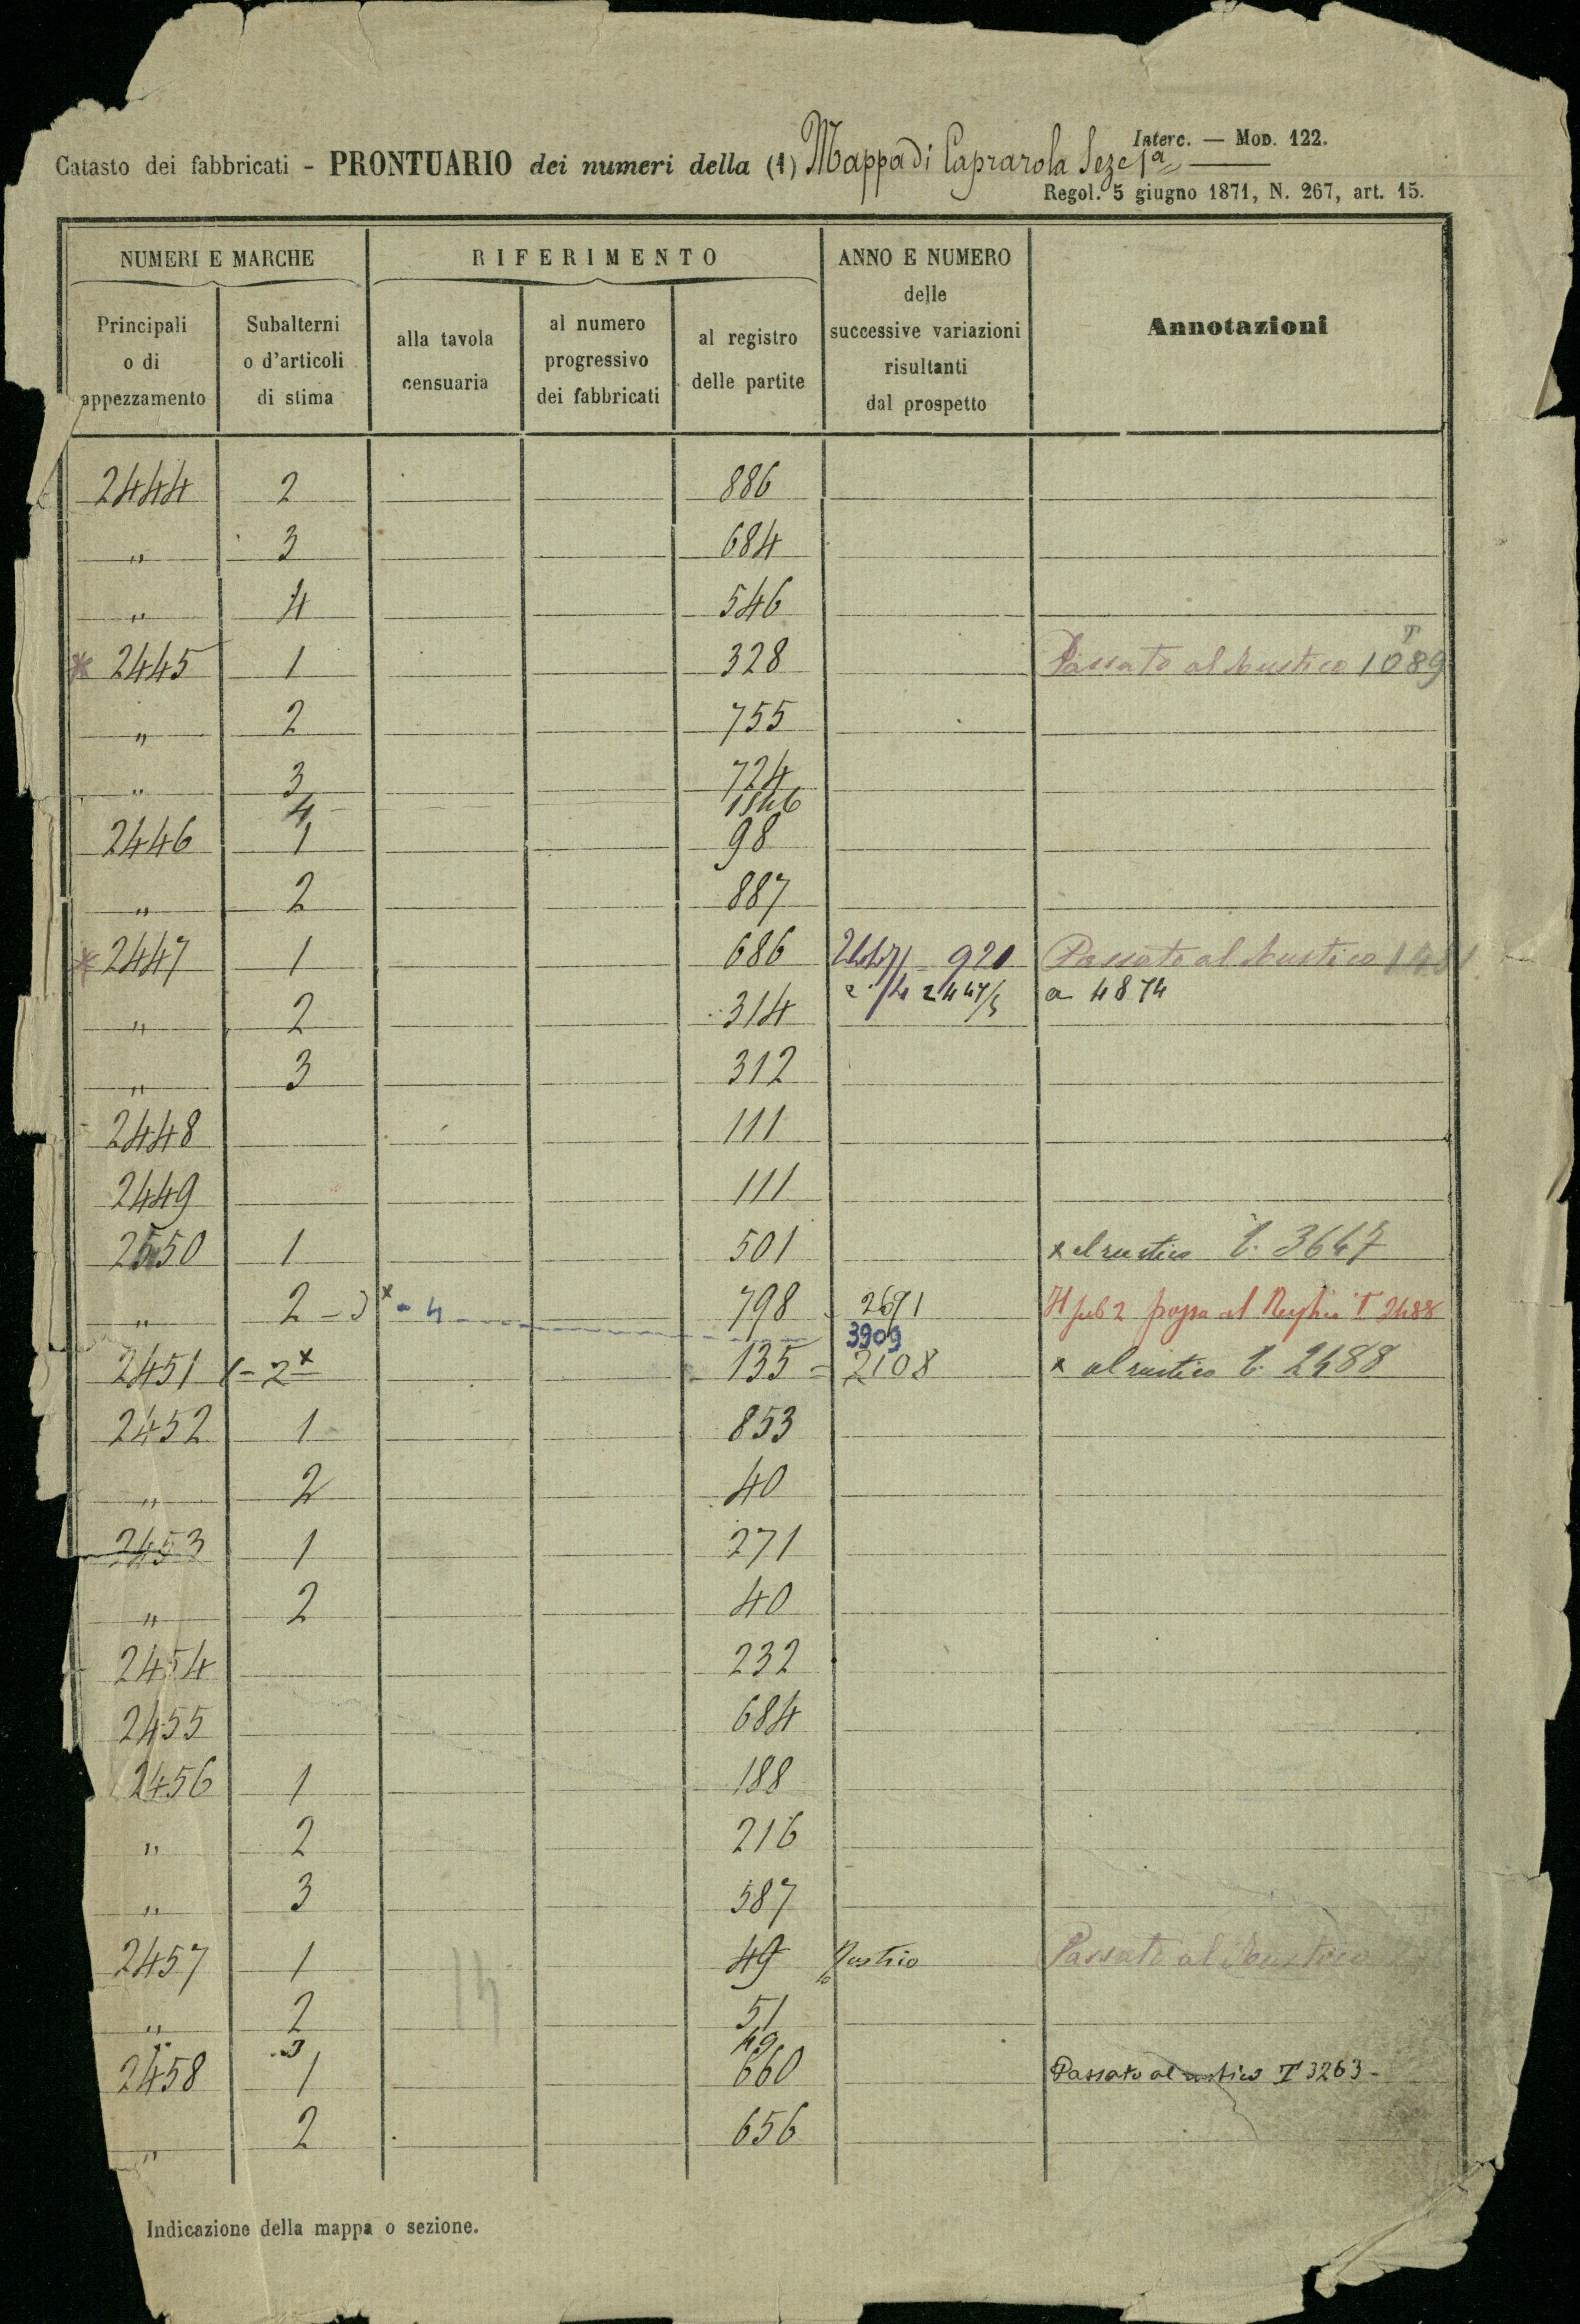 Interc. — Mod. 122.
Catasto dei fabbricati - PRONTUARIO dei numeri della (1) Mappa di Caprarola Seze 1ª
Regol. 5 giugno 1871, N. 267, art. 15.
NUMERI E MARCHE RIFERIMENTO ANNO E NUMERO delle successive variazioni risultanti dal prospetto Annotazioni
Principali o di appezzamento Subalterni o d'articoli di stima alla tavola censuaria al numero progressivo dei fabbricati al registro delle partite
2444 2 886
" 3 684
" 4 546
* 2445 1 328 Passato al Rustico T 1089
" 2 755
" 3 724
4 1546
2446 1 98
" 2 887
* 2447 1 686 920 Passato al Rustico
" 2 314 2447/3 a 4874
" 3 312
2448 111
2449 111
2550 1 501 x al rustico t. 3647
" 2 - 3 x - 4 798 2691 sub 2 passa al T 2488
3909
2451 1 - 2 x 135 = 2108 x al rustico t. 2488
2452 1 853
" 2 40
2453 1 271
" 2 40
2454 232
2455 684
2456 1 188
" 2 216
" 3 587
2457 1 49 Rustico Passato al Rustico
" 2 51
" 3 49
2458 1 660 Passato al rustico T 3263-
" 2 656
14
Indicazione della mappa o sezione.